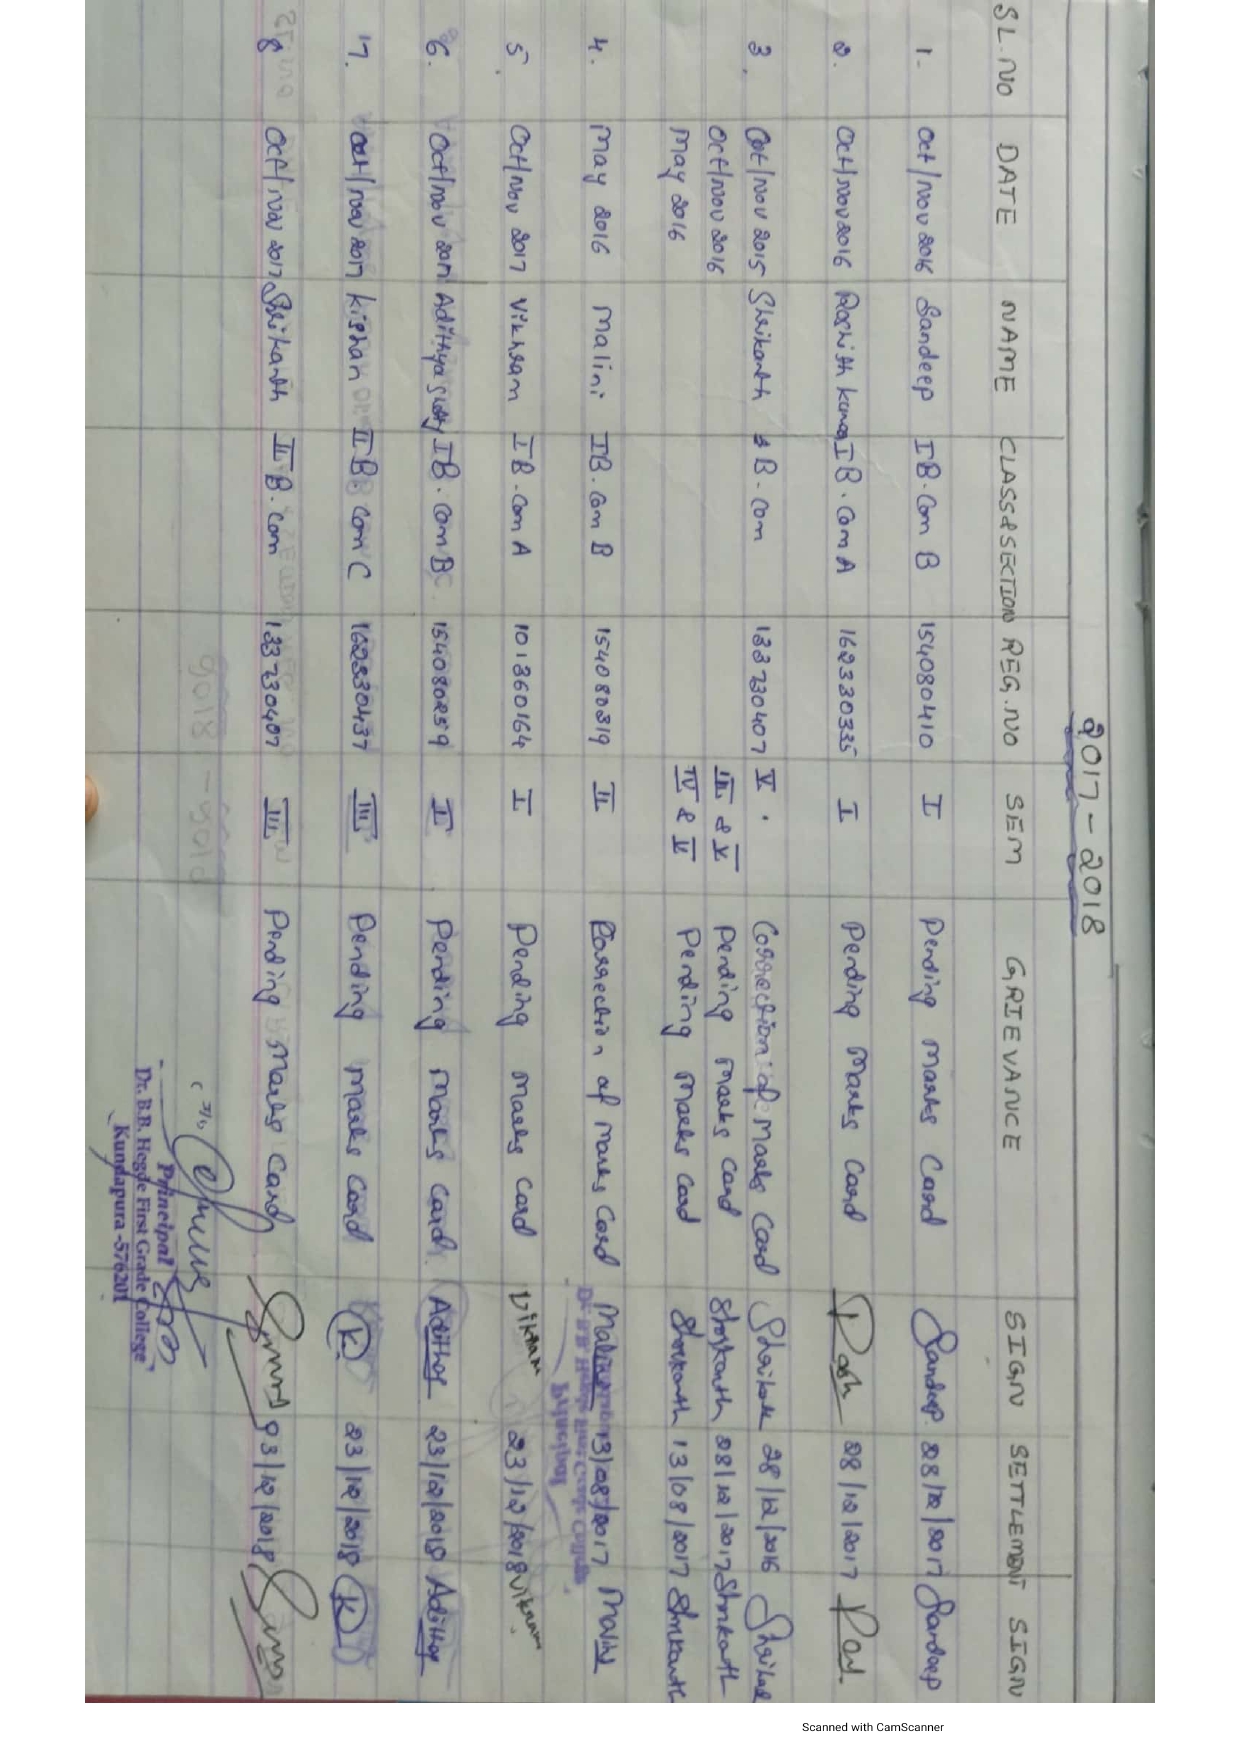 2017-2018
SL.NO DATE NAME CLASS&SECTION REG.NO SEM GRIEVANCE SIGN SETTLEMENT SIGN
1. Oct/Nov 2016 Sandeep I B.Com B 154080410 I Pending Marks Card Sandeep 28/12/2017 Sandeep
2. Oct/Nov 2016 Rashith Kumar I B.Com A 162330335 I Pending Marks Card Rash 28/12/2017
3. Oct/Nov 2015 Shrikanth B.Com 133730407 V. Correction of Marks Card 28/12/2016
Oct/Nov 2016 III & V Pending Marks Card Shrikanth 28/12/2017 Shrikanth
May 2016 IV & V Pending Marks Card Shrikanth 13/08/2017 Shrikanth
4. May 2016 Malini I B.Com B 154080319 II Correction of Marks Card Malini 13/08/2017 Malini
5. Oct/Nov 2017 Vikhram I B.Com A 101360164 I Pending Marks Card Vikram 23/12/2018 Vikram
6. Oct/Nov 2017 Adithya Shetty I B.Com B 154080259 I Pending Marks Card Adithya 23/12/2018 Adithya
7. Oct/Nov 2017 Kishan II B Com C 162330437 III Pending Marks Card K. 23/12/2018 K
8 Oct/Nov 2017 Shrikanth II B.Com 133730407 III Pending Marks Card 23/12/2018
Principal
Dr. B.B. Hegde First Grade College
Kundapura -576201
Scanned with CamScanner